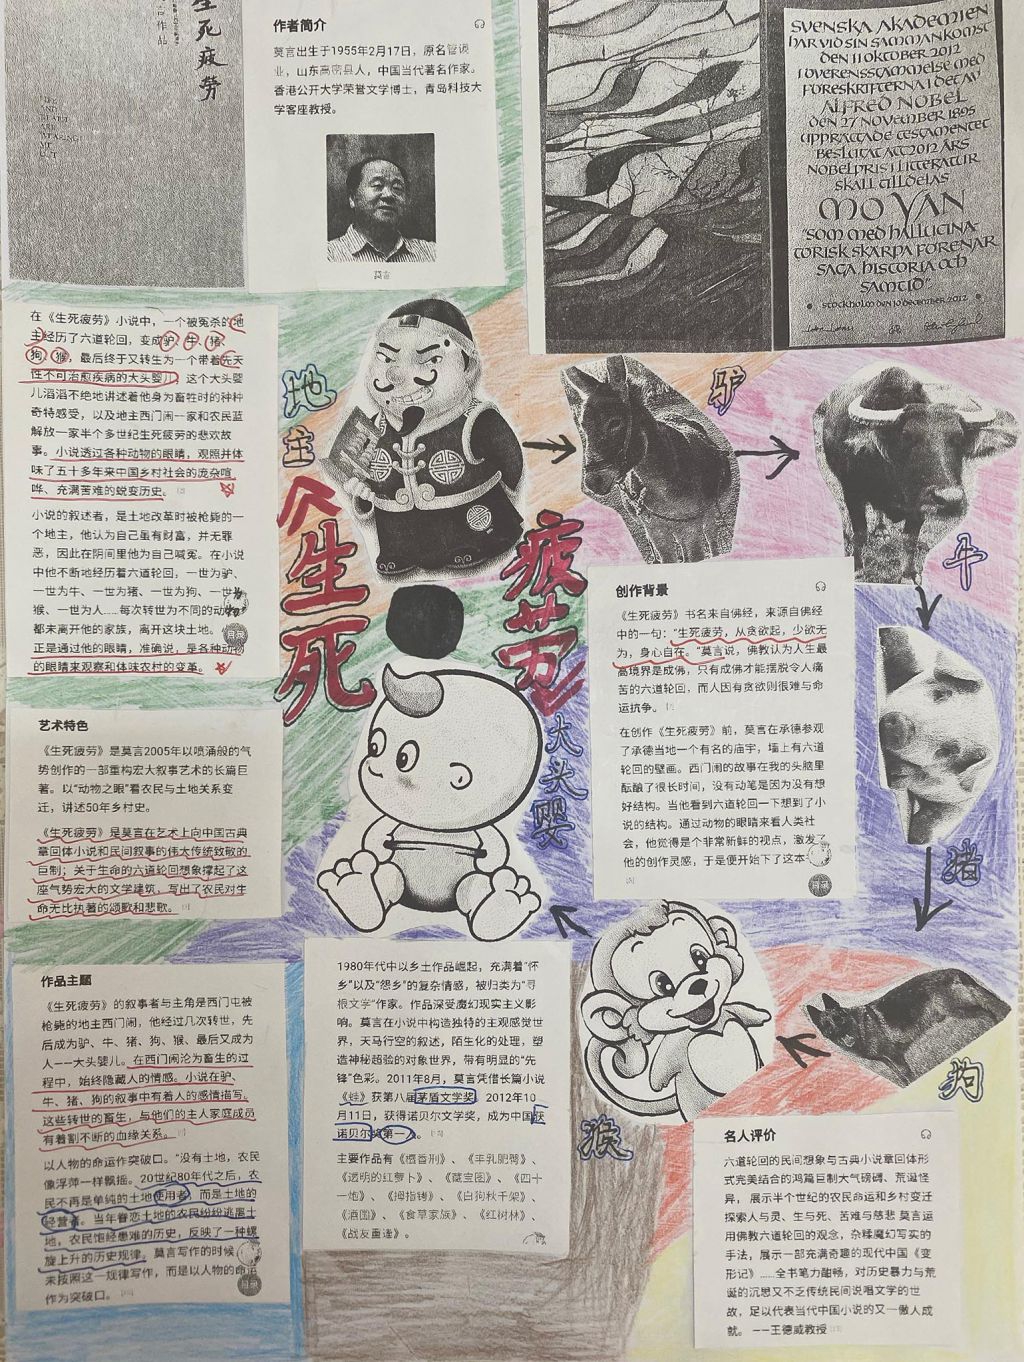 生死疲劳
作者简介
莫言出生于1955年2月17日，原名管谟
业，山东高密县人，中国当代著名作家。
香港公开大学荣誉文学博士，青岛科技大
学客座教授。
莫言
SVENSKA AKADEMIEN
HAR VID SIN SAMMANKOMST
DEN 11 OKTOBER 2012
I ÖVERENSSTÄMMELSE MED
FÖRESKRIFTERNA I DET AV
ALFRED NOBEL
DEN 27 NOVEMBER 1895
UPPRÄTTADE TESTAMENTET
BESLUTAT ATT 2012 ÅRS
NOBELPRIS I LITTERATUR
SKALL TILLDELAS
MO YAN
"SOM MED HALLUCINA-
TORISK SKÄRPA FÖRENAR
SAGA HISTORIA OCH
SAMTID"
STOCKHOLM DEN 10 DECEMBER 2012
在《生死疲劳》小说中，一个被冤杀的地
主经历了六道轮回，变成驴、牛、猪、
狗、猴，最后终于又转生为一个带着先天
性不可治愈疾病的大头婴儿。这个大头婴
儿滔滔不绝地讲述着他身为畜牲时的种种
奇特感受，以及地主西门闹一家和农民蓝
解放一家半个多世纪生死疲劳的悲欢故
事。小说透过各种动物的眼睛，观照并体
味了五十多年来中国乡村社会的庞杂喧
哗、充满苦难的蜕变历史。
小说的叙述者，是土地改革时被枪毙的一
个地主，他认为自己虽有财富，并无罪
恶，因此在阴间里他为自己喊冤。在小说
中他不断地经历着六道轮回，一世为驴、
一世为牛、一世为猪、一世为狗、一世为
猴、一世为人……每次转世为不同的动物，
都未离开他的家族，离开这块土地。
正是通过他的眼睛，准确说，是各种动物
的眼睛来观察和体味农村的变革。
目录
地主
驴
牛
猪
狗
猴
大头婴
《生死
疲劳》
创作背景
《生死疲劳》书名来自佛经，来源自佛经
中的一句："生死疲劳，从贪欲起，少欲无
为，身心自在。"莫言说，佛教认为人生最
高境界是成佛，只有成佛才能摆脱令人痛
苦的六道轮回，而人因有贪欲则很难与命
运抗争。
在创作《生死疲劳》前，莫言在承德参观
了承德当地一个有名的庙宇，墙上有六道
轮回的壁画。西门闹的故事在我的头脑里
酝酿了很长时间，没有动笔是因为没有想
好结构。当他看到六道轮回一下想到了小
说的结构。通过动物的眼睛来看人类社
会，他觉得是个非常新鲜的视点，激发了
他的创作灵感，于是便开始下了这本
目录
艺术特色
《生死疲劳》是莫言2005年以喷涌般的气
势创作的一部重构宏大叙事艺术的长篇巨
著。以"动物之眼"看农民与土地关系变
迁，讲述50年乡村史。
《生死疲劳》是莫言在艺术上向中国古典
章回体小说和民间叙事的伟大传统致敬的
巨制；关于生命的六道轮回想象撑起了这
座气势宏大的文学建筑，写出了农民对生
命无比执著的颂歌和悲歌。
作品主题
《生死疲劳》的叙事者与主角是西门屯被
枪毙的地主西门闹，他经过几次转世，先
后成为驴、牛、猪、狗、猴、最后又成为
人——大头婴儿。在西门闹沦为畜生的过
程中，始终隐藏人的情感。小说在驴、
牛、猪、狗的叙事中有着人的感情描写。
这些转世的畜生，与他们的主人家庭成员
有着割不断的血缘关系。
以人物的命运作突破口。"没有土地，农民
像浮萍一样飘摇。20世纪80年代之后，农
民不再是单纯的土地使用者，而是土地的
经营者。当年眷恋土地的农民纷纷逃离土
地，农民饱经患难的历史，反映了一种螺
旋上升的历史规律。莫言写作的时候
未按照这一规律写作，而是以人物的命运
作为突破口。
目录
1980年代中以乡土作品崛起，充满着"怀
乡"以及"怨乡"的复杂情感，被归类为"寻
根文学"作家。作品深受魔幻现实主义影
响。莫言在小说中构造独特的主观感觉世
界，天马行空的叙述，陌生化的处理，塑
造神秘超验的对象世界，带有明显的"先
锋"色彩。2011年8月，莫言凭借长篇小说
《蛙》获第八届茅盾文学奖。2012年10
月11日，获得诺贝尔文学奖，成为中国获
诺贝尔奖第一人。
主要作品有《檀香刑》、《丰乳肥臀》、
《透明的红萝卜》、《藏宝图》、《四十
一炮》、《拇指铐》、《白狗秋千架》、
《酒国》、《食草家族》、《红树林》、
《战友重逢》。
名人评价
六道轮回的民间想象与古典小说章回体形
式完美结合的鸿篇巨制大气磅礴、荒诞怪
异，展示半个世纪的农民命运和乡村变迁
探索人与灵、生与死、苦难与慈悲 莫言运
用佛教六道轮回的观念，杂糅魔幻写实的
手法，展示一部充满奇趣的现代中国《变
形记》……全书笔力酣畅，对历史暴力与荒
诞的沉思又不乏传统民间说唱文学的世
故，足以代表当代中国小说的又一傲人成
就。 ——王德威教授